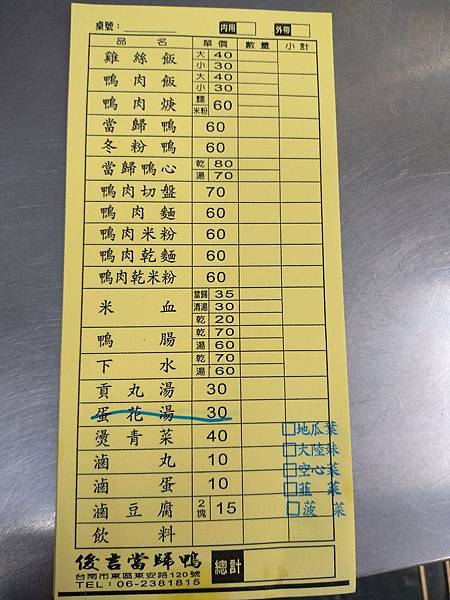 桌號： 內用 外帶
品名 單價 數量 小計
雞絲飯 大 40
小 30
鴨肉飯 大 40
小 30
鴨肉焿 麵 米粉 60
當歸鴨 60
冬粉鴨 60
當歸鴨心 乾 80
湯 70
鴨肉切盤 70
鴨肉麵 60
鴨肉米粉 60
鴨肉乾麵 60
鴨肉乾米粉 60
米血 當歸 35
清湯 30
乾 20
鴨腸 乾 70
湯 60
下水 乾 70
湯 60
貢丸湯 30
蛋花湯 30
燙青菜 40
滷丸 10
滷蛋 10
滷豆腐 2塊 15
飲料
□地瓜葉
□大陸妹
□空心菜
□韮菜
□菠菜
俊吉當歸鴨 總計
台南市東區東安路120號
TEL：06-2381815